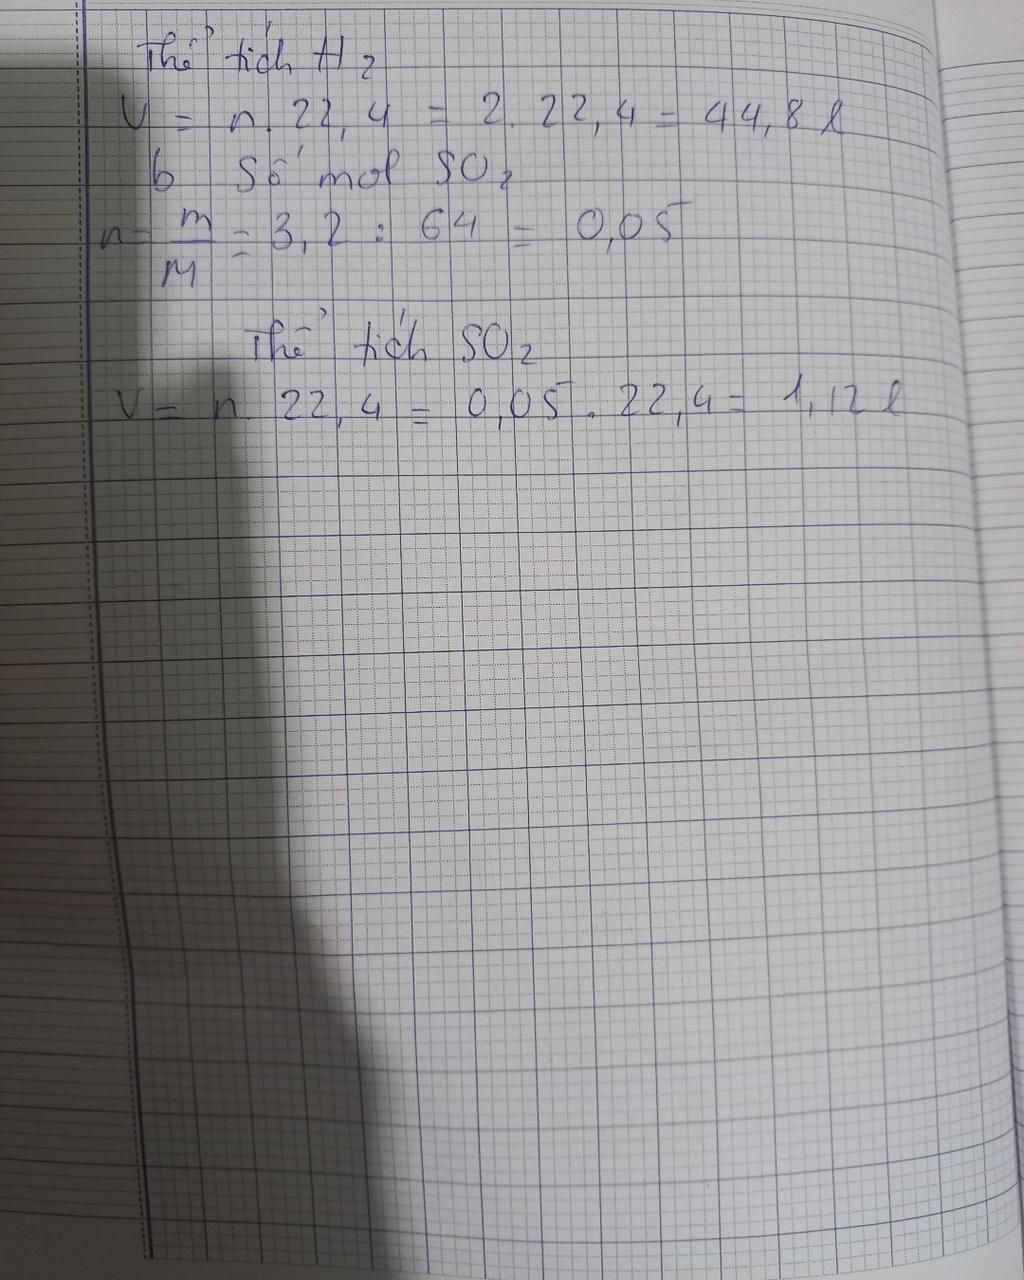 Thể tích H₂
V = n. 22,4 = 2. 22,4 = 44,8 l
b Số mol SO₂
n = m/M = 3,2 : 64 = 0,05
Thể tích SO₂
V = n. 22,4 = 0,05 . 22,4 = 1,12 l